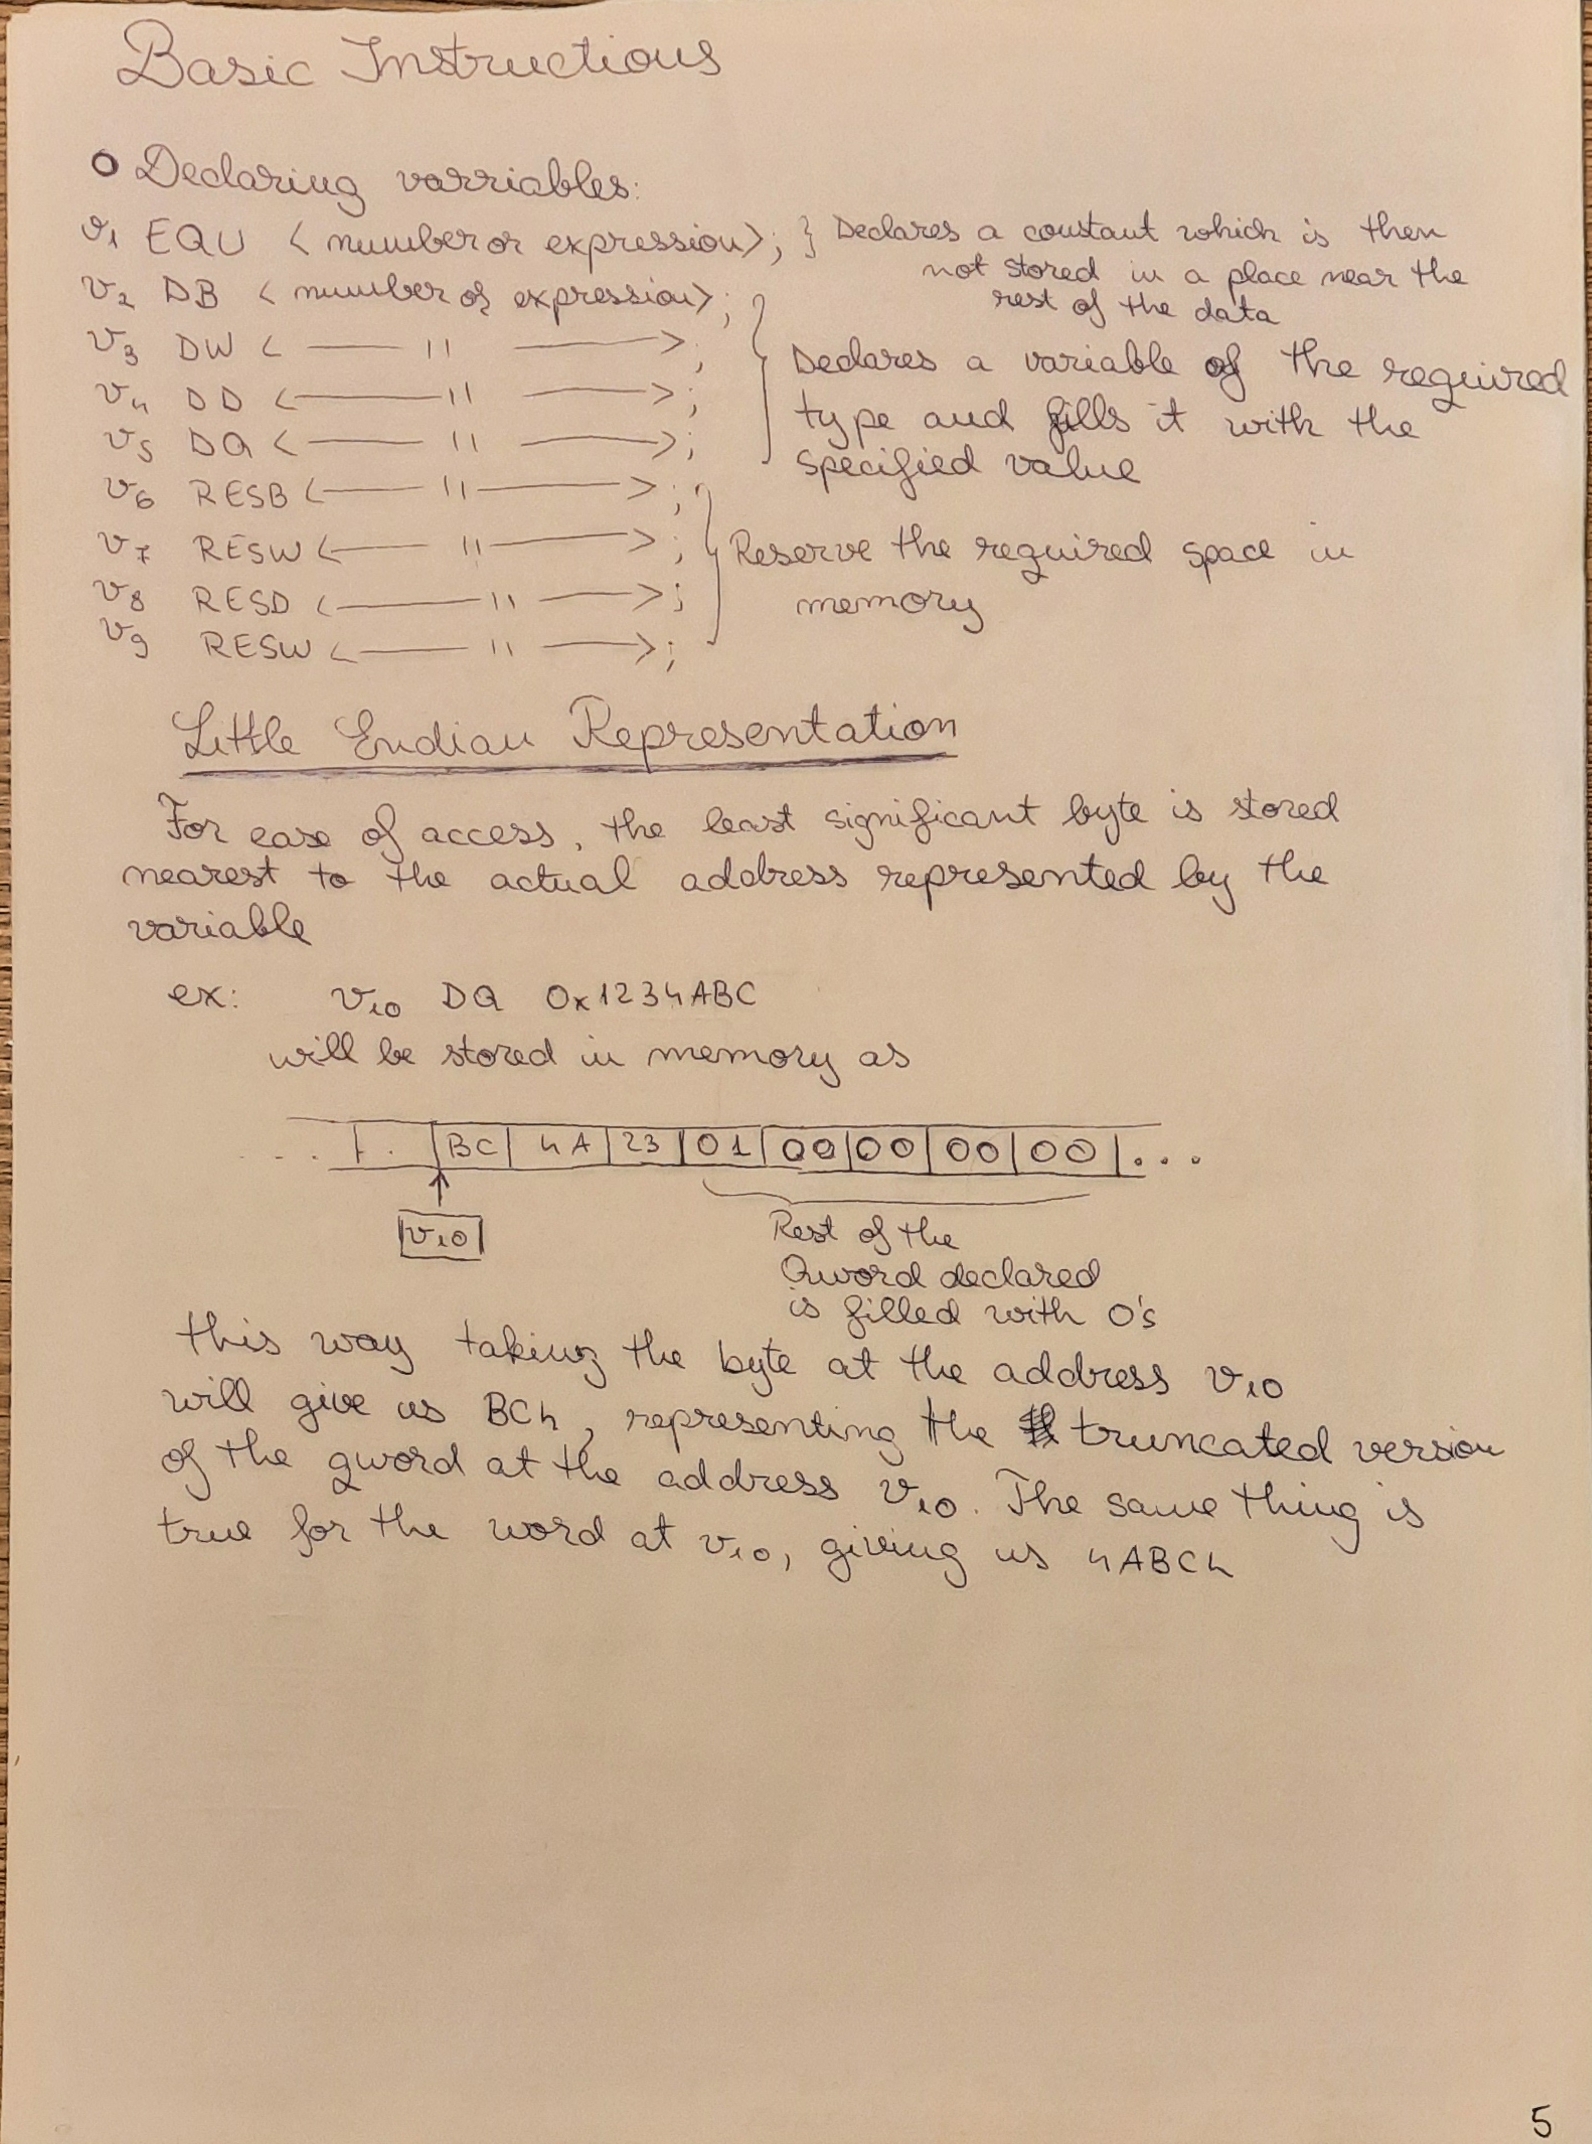 Basic Instructions
o Declaring varriables:
v1 EQU < number or expression>; } Declares a constant which is then
not stored in a place near the
rest of the data
v2 DB < number of expression>;
v3 DW < — 11 — >;
v4 DD < — 11 — >;
v5 DQ < — 11 — >;
Declares a variable of the required
type and fills it with the
specified value
v6 RESB < — 11 — >;
v7 RESW < — 11 — >;
v8 RESD < — 11 — >;
v9 RESW < — 11 — >;
Reserve the required space in
memory
Little Endian Representation
For ease of access, the least significant byte is stored
nearest to the actual address represented by the
variable
ex: v10 DQ 0x1234ABC
will be stored in memory as
... | . |BC| 4A |23|01|00|00|00|00|...
v10
Rest of the
Qword declared
is filled with 0's
this way taking the byte at the address v10
will give us BCh, representing the truncated version
of the qword at the address v10. The same thing is
true for the word at v10, giving us 4ABCh
5